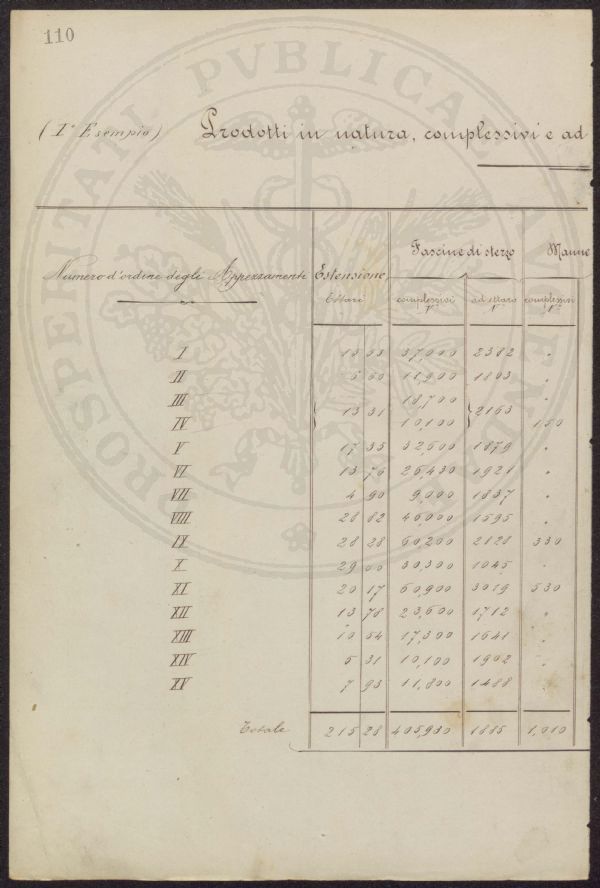 110
PROSPERITATI PVBLICAE AVGENDAE
(I° Esempio) Prodotti in natura, complessivi e ad
Numero d'ordine degli Appezzamenti Estensione Fascine di sterzo Manne
Ettari complessivi N° ad ettaro N° complessivi N°
I 15 53 37,000 2382 "
II 6 60 11,900 1803 "
III 13 31 18,700 2163 "
IV 10,100 150
V 17 35 32,600 1879 "
VI 13 76 26,430 1921 "
VII 4 90 9,000 1837 "
VIII 28 82 46,000 1595 "
IX 28 28 60,200 2128 330
X 29 00 30,300 1045 "
XI 20 17 60,900 3019 530
XII 13 78 23,600 1712 "
XIII 10 54 17,300 1641 "
XIV 5 31 10,100 1902 "
XV 7 93 11,800 1488 "
Totale 215 28 405,930 1885 1,010